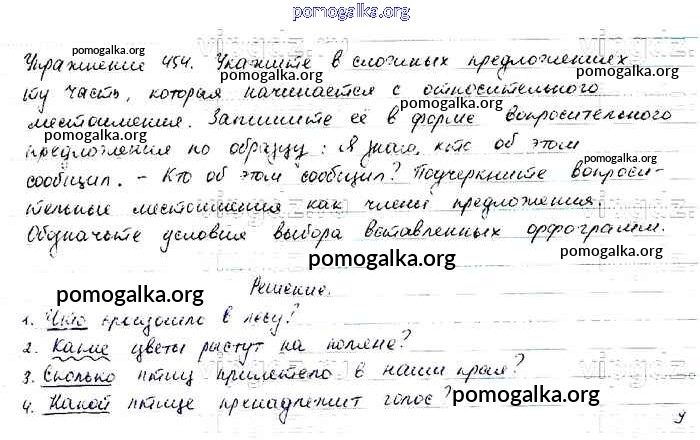 pomogalka.org
Упражнение 454. Укажите в сложных предложениях
ту часть, которая начинается с относительного
местоимения. Запишите её в форме вопросительного
предложения по образцу: Я знаю, кто об этом
сообщил. - Кто об этом сообщил? Подчеркните вопроси-
тельные местоимения как члены предложения.
Обозначьте условия выбора вставленных орфограмм.
pomogalka.org
pomogalka.org
pomogalka.org
pomogalka.org
pomogalka.org
pomogalka.org
pomogalka.org
pomogalka.org
Решение.
pomogalka.org
1. Что произошло в лесу?
2. Какие цветы растут на поляне?
3. Сколько птиц прилетело в наши края?
4. Какой птице принадлежит голос?
pomogalka.org
9